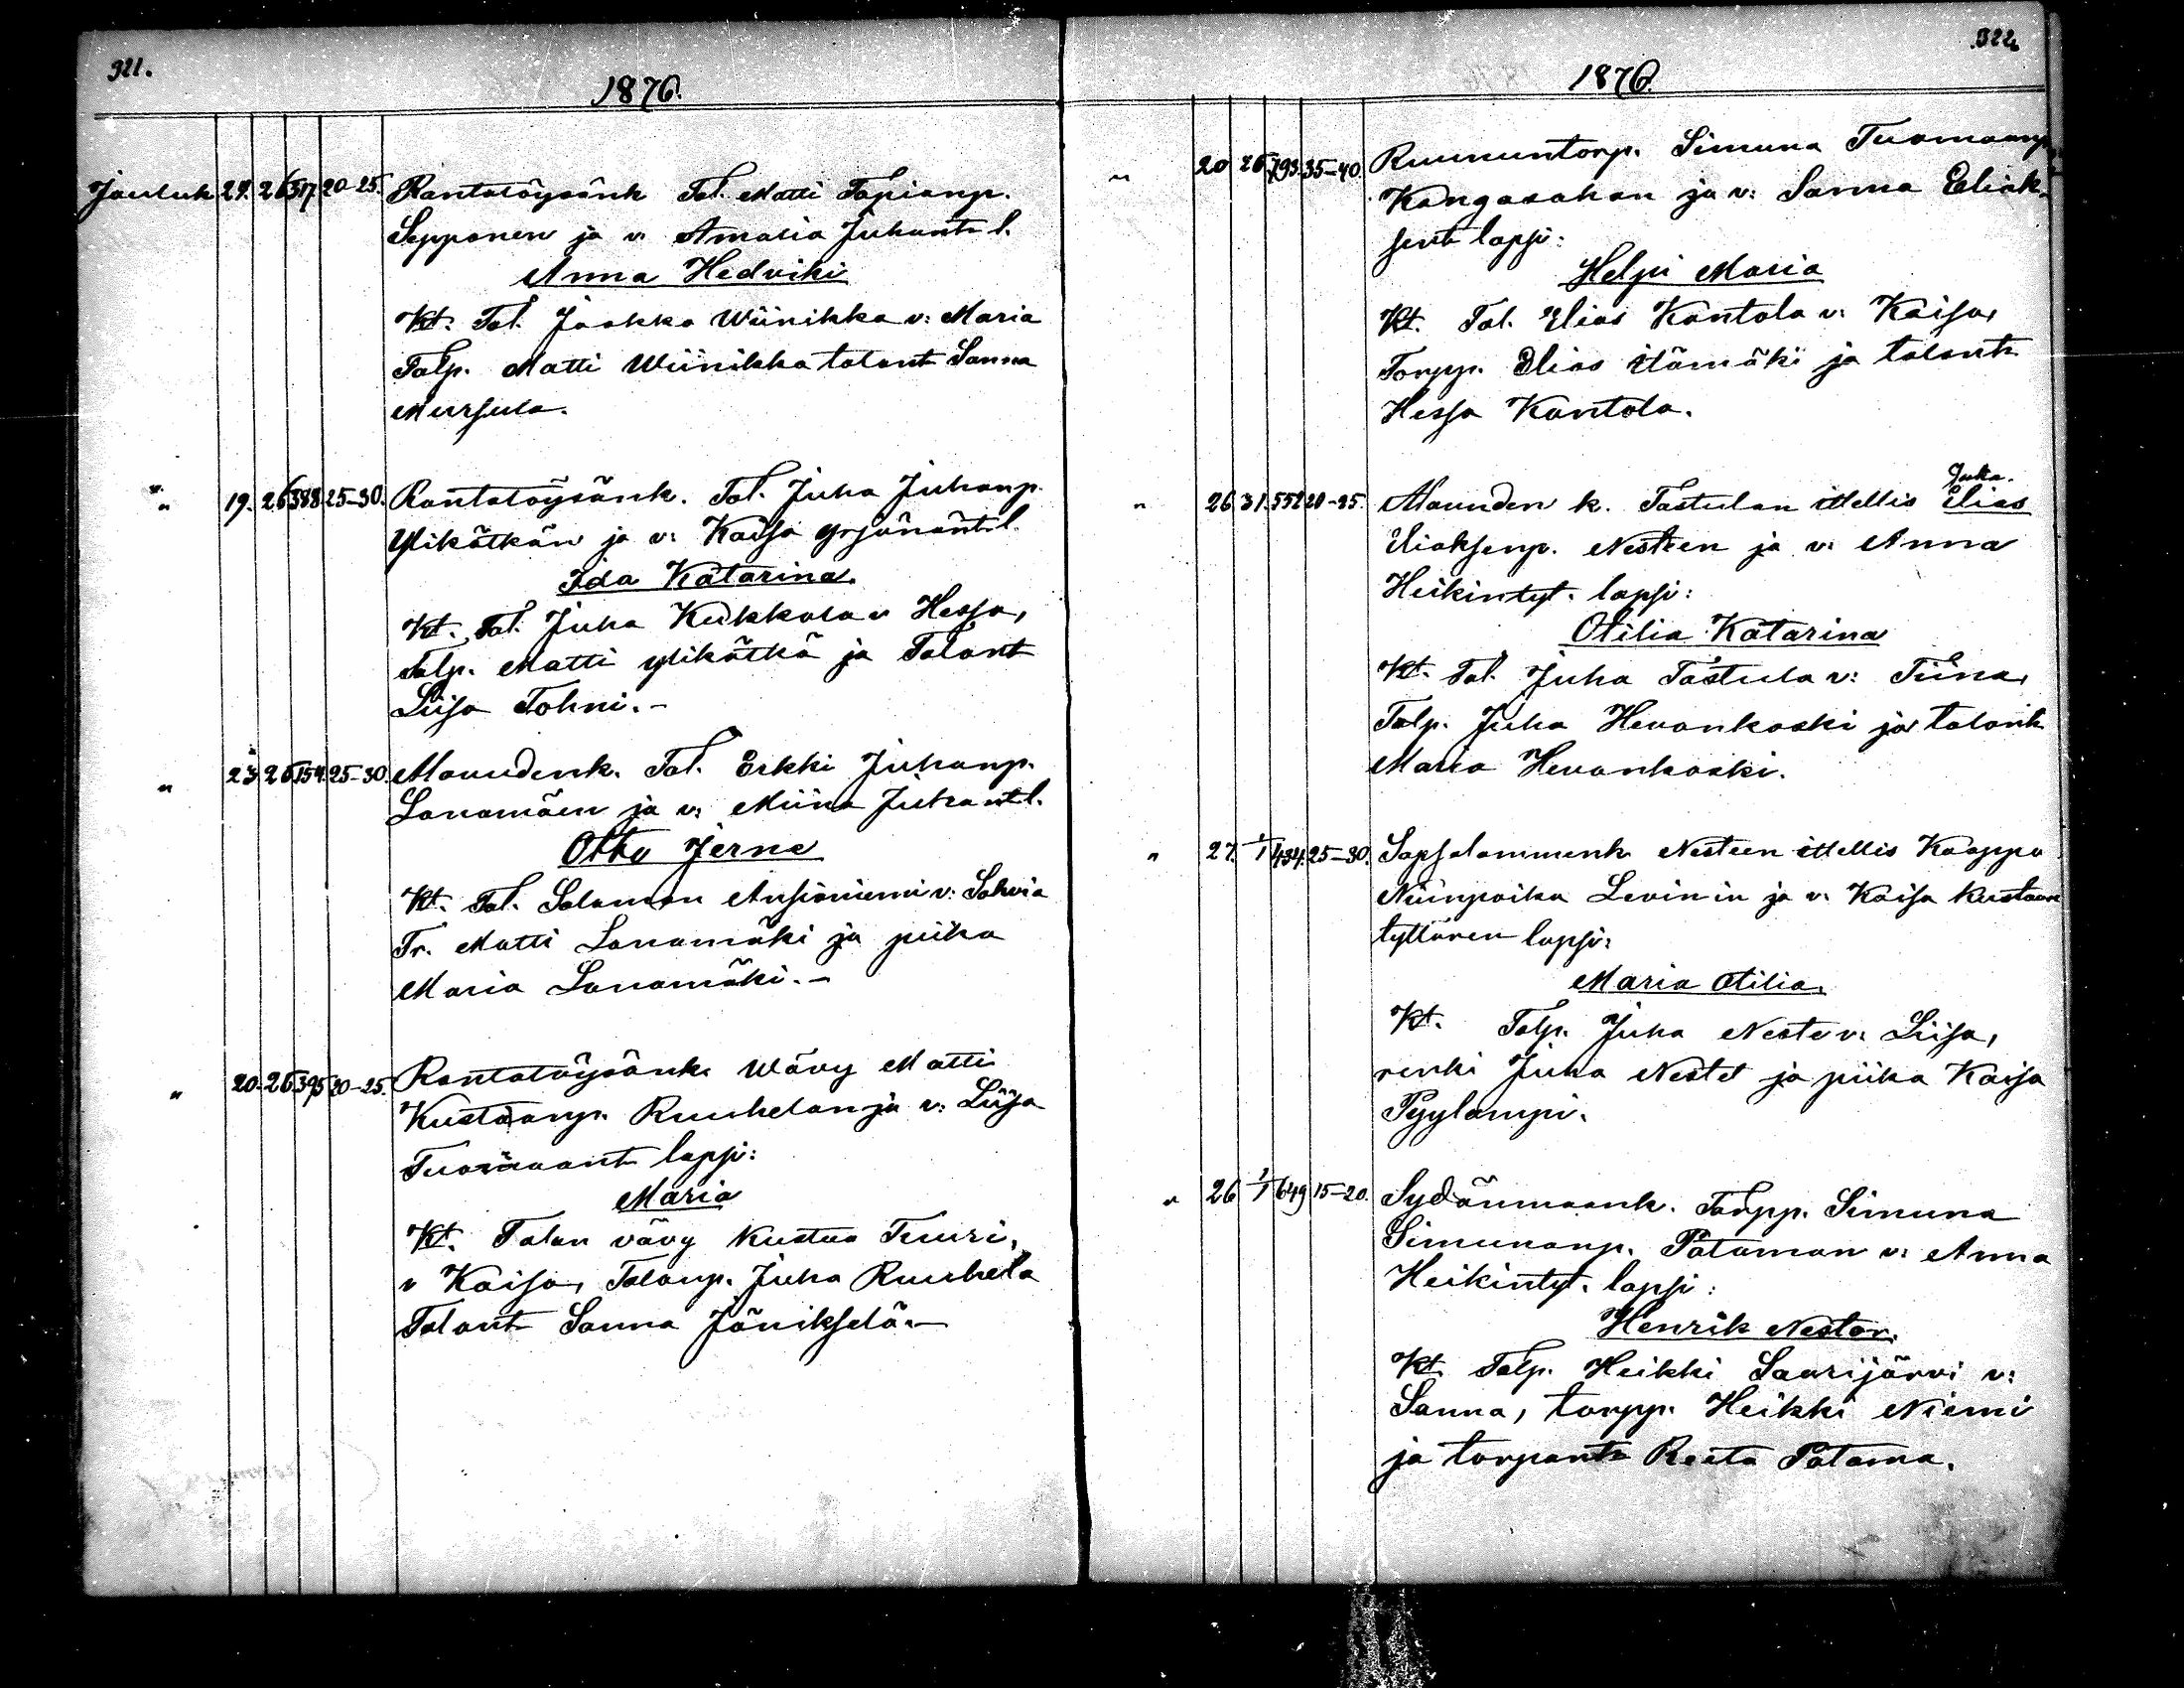 321.
1876.
Jouluk 24. 26 317 20-25. Rantatöysänk Tal. Matti Tapianp.
Sepponen ja v. Amalia Juhant l.
Anna Hedviki
Kt. Tal. Jaakko Wiinikka v: Maria
Talp. Matti Wiinikka talont Sanna
Mursula.
" 19. 26 388 25-30. Rantatöysänk. Tal. Juha Juhanp.
Ylikätkän ja v: Kaisa Yrjänänt l.
Ida Katarina.
Kt. Tal. Juha Kukkola v Hessa,
Talp. Matti ylikätkä ja Talont
Liisa Tohni.-
" 23. 26 154. 25-30. Alavudenk. Tal. Erkki Juhanp.
Lanamäen ja v: Miina Juhant l.
Otto Jerne
Kt. Tal. Salomon Ansioniemi v: Sahvia
Tr. Matti Lanamäki ja piika
Maria Lanamäki.-
" 20. 26 395 20-25. Rantatöysänk Wävy Matti
Kustaanp. Ruuhelan ja v: Liisa
Tuomaant lapsi:
Maria
Kt. Talon vävy Kustaa Tuuri,
v Kaisa, Talonp. Juha Ruuhela
Talont Sanna Jänikselä.-
322.
1876.
" 20 26 793. 35-40. Ruununtorp. Simuna Tuomaanp
Kangasahon ja v: Sanna Eliak-
sent lapsi:
Helpi Maria
Kt. Tal. Elias Kantola v: Kaisa,
Torpp. Elias itämäki ja talont
Hessa Kantola.
Juha.
" 26 31. 552 20-25. Alavuden k. Tastulan itellis Elias
Eliaksenp. Nesteen ja v: Anna
Heikintyt. lapsi:
Otilia Katarina
Kt. Tal. Juha Tastula v: Tiina,
Talp. Juha Hevonkoski ja talont
Maria Hevonkoski.
" 27. 1/1 484. 25-30. Sapsalammenk Nesteen itellis Kaappo
Niinpoika Levinin ja v: Kaisa Kustaan
tyttären lapsi:
Maria Otilia.
Kt. Talp. Juha Neste v: Liisa,
renki Juha Nestet ja piika Kaisa
Pyylampi.
" 26 1/1 649 15-20. Sydänmaank. Torpp. Simuna
Simunanp. Pataman v: Anna
Heikintyt. lapsi:
Henrik Nestor.
Kt. Talp. Heikki Saarijärvi v:
Sanna, torpp. Heikki Niemi
ja torpant Reeta Patama.